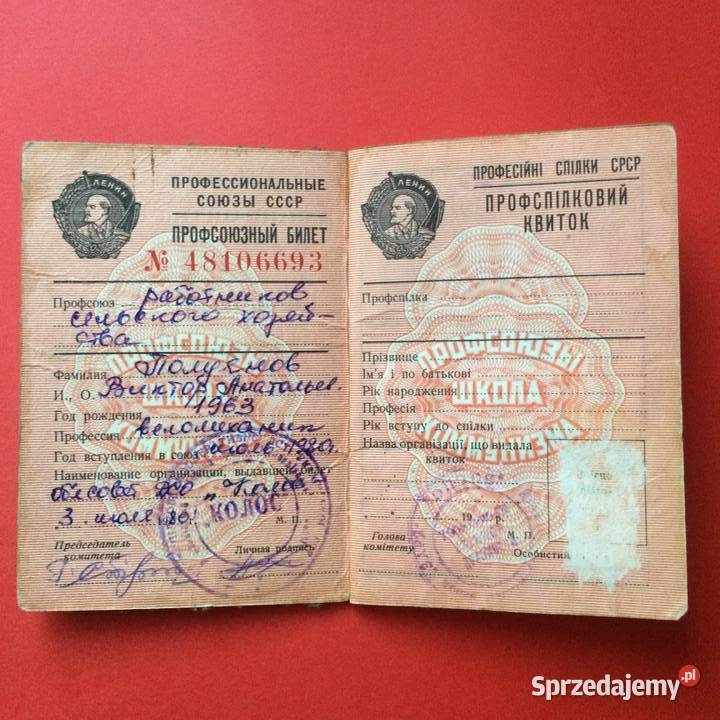 ЛЕНИН
ПРОФЕССИОНАЛЬНЫЕ
СОЮЗЫ СССР
ПРОФСОЮЗНЫЙ БИЛЕТ
№ 48106693
Профсоюз работников
сельского хозяй-
ства
Фамилия
И., О. Виктор Анатольев.
Год рождения 1963
Профессия веломеханик
Год вступления в союз июль 1980
Наименование организации, выдавшей билет
облсовет ДСО „Колос"
3 июля 1980
М. П.
КОЛОС
Председатель
комитета
Личная подпись
ЛЕНИН
ПРОФЕСІЙНІ СПІЛКИ СРСР
ПРОФСПІЛКОВИЙ
КВИТОК
Профспілка
ПРОФСОЮЗЫ
ШКОЛА
КОММУНИЗМА
Прізвище
Ім'я і по батькові
Рік народження
Професія
Рік вступу до спілки
Назва організації, що видала
квиток
19 р.
М. П.
Голова
комітету
Особистий
Sprzedajemy.pl